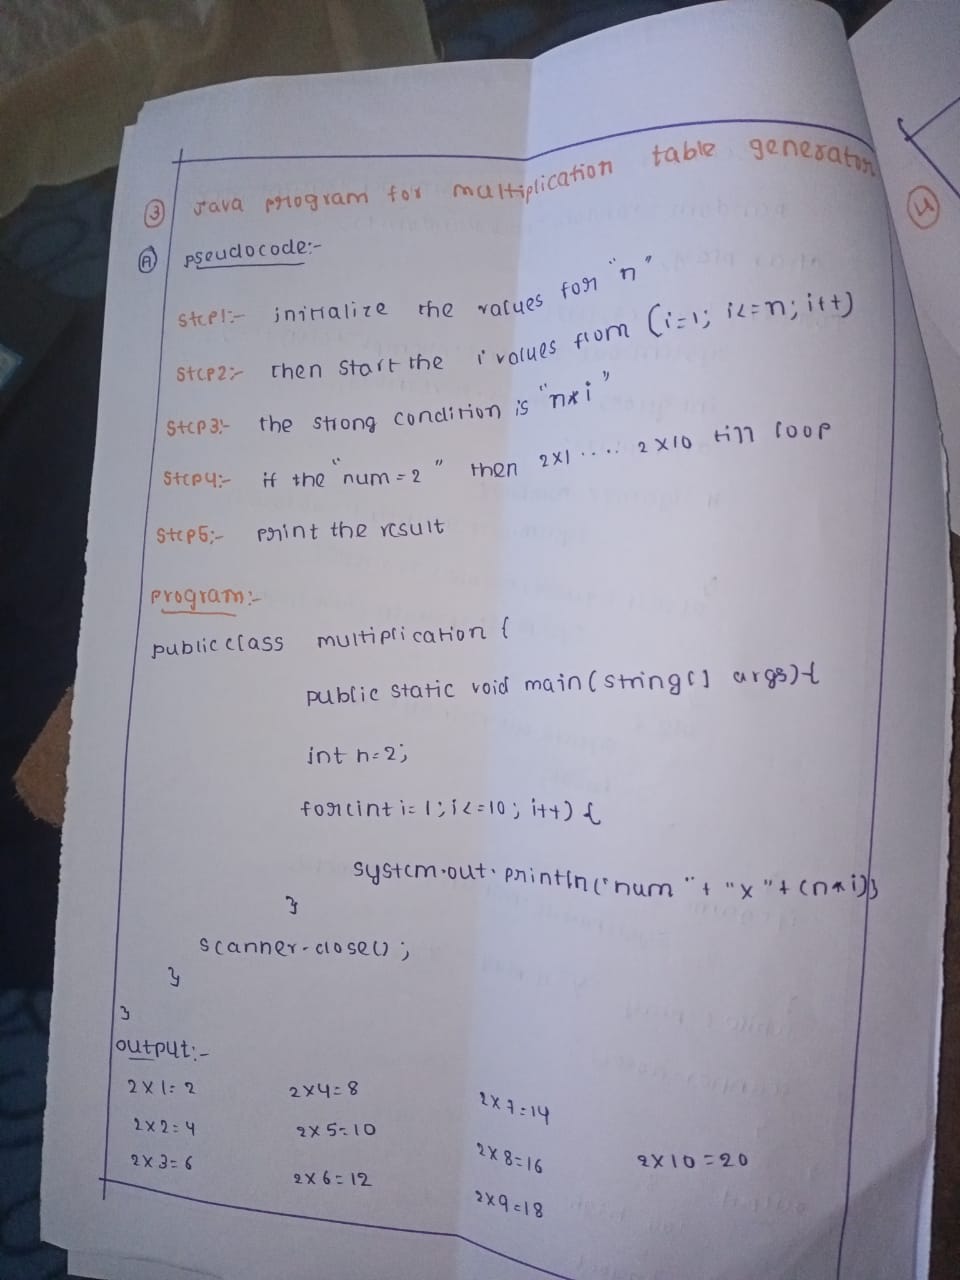 ③ Java program for multiplication table generator
Ⓐ pseudocode:-
Step1:- initialize the values for "n"
Step2:- then start the i values from (i=1; i<=n; i++)
Step3:- the strong condition is "n*i"
Step4:- if the "num = 2" then 2x1 ..... 2x10 till loop
Step5:- print the result
program:-
public class multiplication {
public static void main(string[] args){
int n=2;
for(int i=1; i<=10; i++) {
system.out.println("num"+"x"+(n*i));
}
scanner.close();
}
}
output:-
2x1=2 2x4=8 2x7=14
2x2=4 2x5=10 2x8=16 2x10=20
2x3=6 2x6=12 2x9=18
④